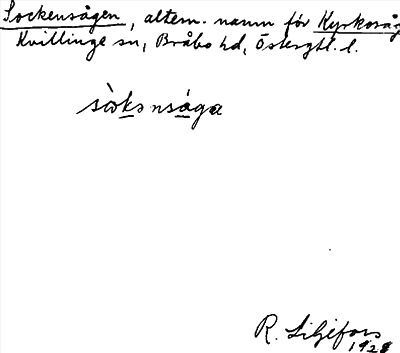 Sockensågen, altern. namn för Kyrkosåg
Kvillinge sn, Bråbo hd, Östergtl. l.
sòkǝnsåga
R. Liljefors
1928